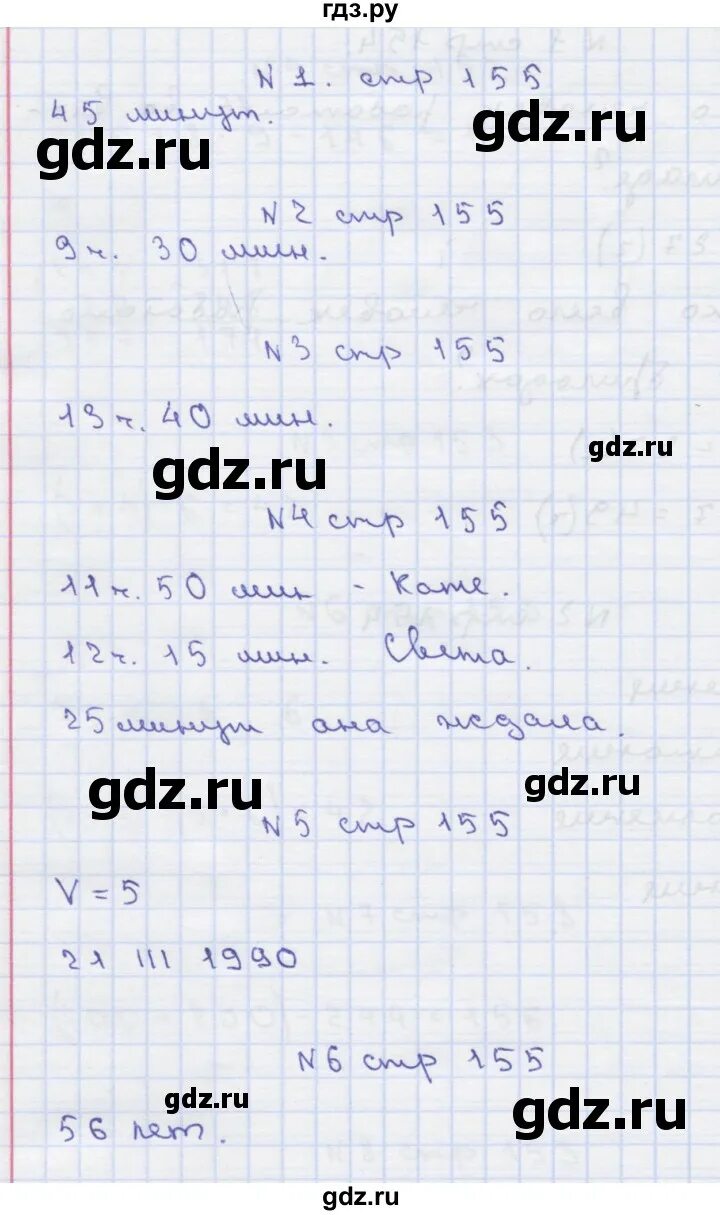 гдз.ру
N 1. стр 155
45 минут.
gdz.ru
gdz.ru
N2 стр 155
9 ч. 30 мин.
N3 стр 155
13 ч. 40 мин.
gdz.ru
gdz.ru
N4 стр 155
11 ч. 50 мин - Кате.
12 ч. 15 мин. Света.
25 минут она ждала.
gdz.ru
gdz.ru
N5 стр 155
V = 5
21 III 1990
N6 стр 155
gdz.ru
gdz.ru
56 лет.
gdz.ru